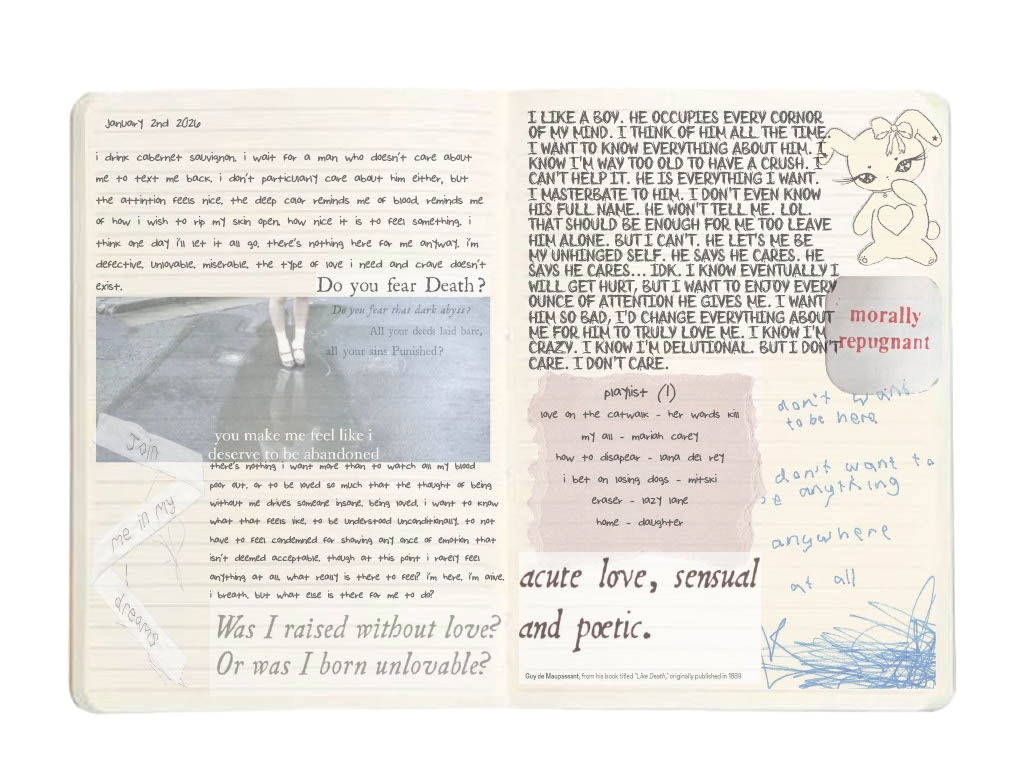 january 2nd 2026
i drink cabernet sauvignon. i wait for a man who doesn't care about
me to text me back. i don't particularly care about him either, but
the attintion feels nice. the deep color reminds me of blood. reminds me
of how i wish to rip my skin open. how nice it is to feel something. i
think one day i'll let it all go. there's nothing here for me anyway. i'm
defective. unlovable. miserable. the type of love i need and crave doesn't
exist.
Do you fear Death?
Do you fear that dark abyss?
All your deeds laid bare,
all your sins Punished?
you make me feel like i
deserve to be abandoned
Join
me in my
dreams
there's nothing i want more than to watch all my blood
poor out. or to be loved so much that the thought of being
without me drives someone insane. being loved. i want to know
what that feels like. to be understood unconditionally. to not
have to feel condemned for showing any once of emotion that
isn't deemed acceptable. though at this point i rarely feel
anything at all. what really is there to feel? i'm here. i'm alive.
i breath. but what else is there for me to do?
Was I raised without love?
Or was I born unlovable?
I LIKE A BOY. HE OCCUPIES EVERY CORNOR
OF MY MIND. I THINK OF HIM ALL THE TIME.
I WANT TO KNOW EVERYTHING ABOUT HIM. I
KNOW I'M WAY TOO OLD TO HAVE A CRUSH. I
CAN'T HELP IT. HE IS EVERYTHING I WANT.
I MASTERBATE TO HIM. I DON'T EVEN KNOW
HIS FULL NAME. HE WON'T TELL ME. LOL.
THAT SHOULD BE ENOUGH FOR ME TOO LEAVE
HIM ALONE. BUT I CAN'T. HE LET'S ME BE
MY UNHINGED SELF. HE SAYS HE CARES. HE
SAYS HE CARES... IDK. I KNOW EVENTUALLY I
WILL GET HURT, BUT I WANT TO ENJOY EVERY
OUNCE OF ATTENTION HE GIVES ME. I WANT
HIM SO BAD, I'D CHANGE EVERYTHING ABOUT
ME FOR HIM TO TRULY LOVE ME. I KNOW I'M
CRAZY. I KNOW I'M DELUTIONAL. BUT I DON'T
CARE. I DON'T CARE.
morally
repugnant
playlist (1)
love on the catwalk - her words kill
my all - mariah carey
how to disapear - lana del rey
i bet on losing dogs - mitski
eraser - lazy lane
home - daughter
don't want
to be here
don't want to
be anything
anywhere
at all
acute love, sensual
and poetic.
Guy de Maupassant, from his book titled "Like Death," originally published in 1889